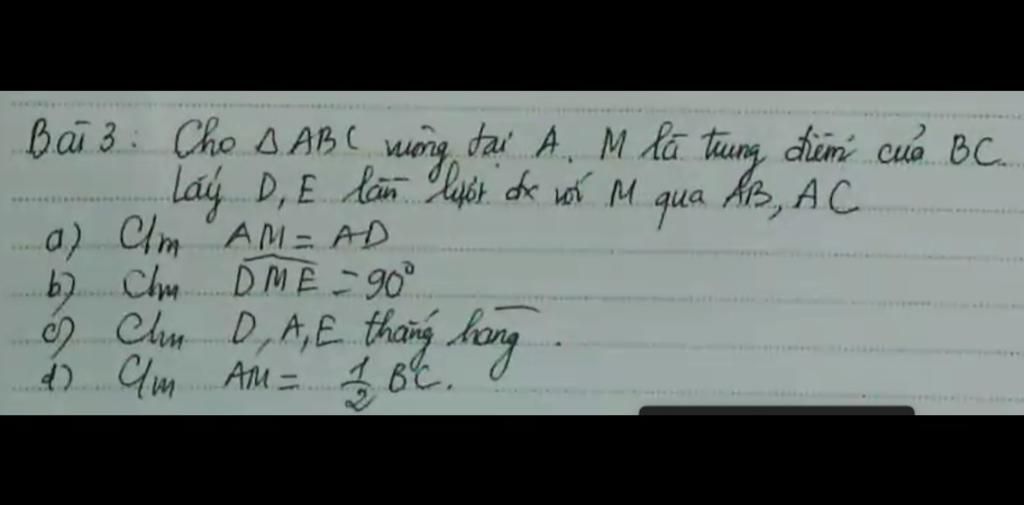 Bài 3: Cho ΔABC vuông tại A. M là trung điểm của BC.
Lấy D, E lần lượt đx với M qua AB, AC
a) C/m AM = AD
b) C/m \widehat{DME} = 90°
c) C/m D, A, E thẳng hàng.
d) C/m AM = \frac{1}{2} BC.